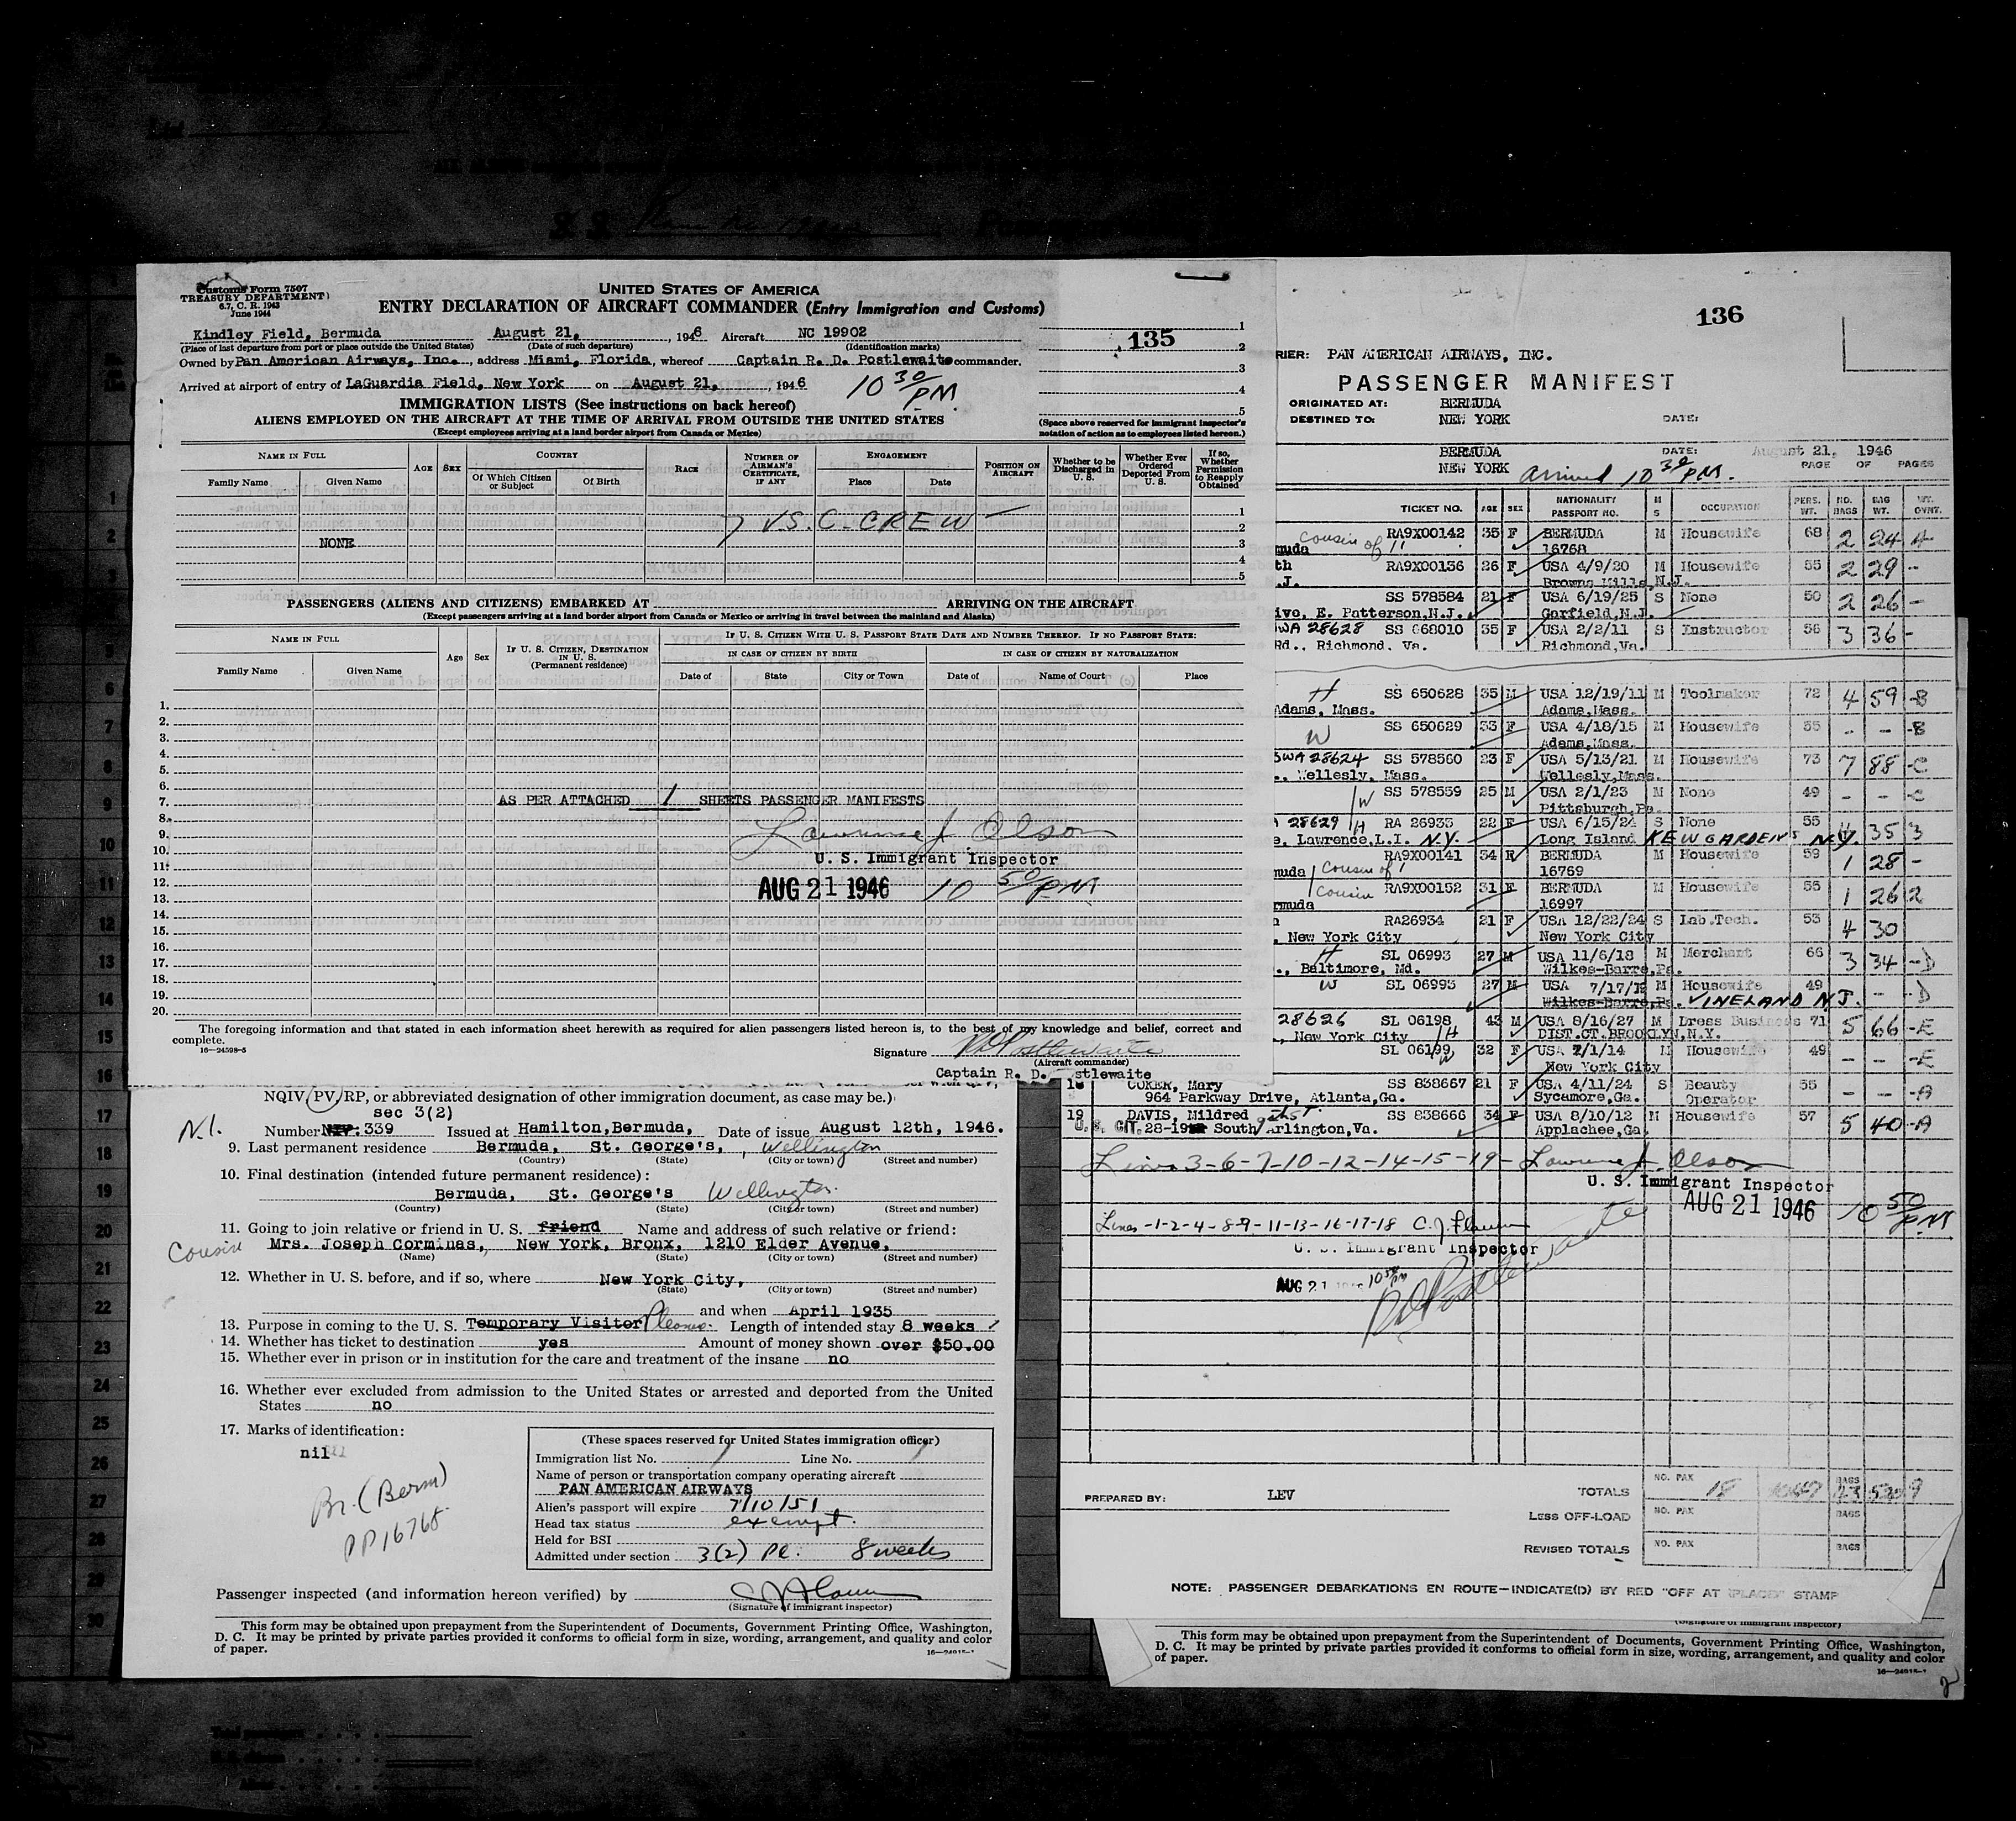 Customs Form 7507
TREASURY DEPARTMENT
6.7, C. R. 1943
June 1944
UNITED STATES OF AMERICA
ENTRY DECLARATION OF AIRCRAFT COMMANDER (Entry Immigration and Customs)
Kindley Field, Bermuda August 21, , 1946 Aircraft NC 19902
(Place of last departure from port or place outside the United States) (Date of such departure) (Identification marks)
Owned by Pan American Airways, Inc. , address Miami, Florida , whereof Captain R. D. Postlewaite commander.
Arrived at airport of entry of LaGuardia Field, New York on August 21, , 1946 10 30/PM
135
1
2
3
4
5
(Space above reserved for immigrant inspector's notation of action as to employees listed hereon.)
IMMIGRATION LISTS (See instructions on back hereof)
ALIENS EMPLOYED ON THE AIRCRAFT AT THE TIME OF ARRIVAL FROM OUTSIDE THE UNITED STATES
(Except employees arriving at a land border airport from Canada or Mexico)
NAME IN FULL
Family Name Given Name
AGE SEX
COUNTRY
Of Which Citizen or Subject Of Birth
RACE
NUMBER OF AIRMAN'S CERTIFICATE, IF ANY
ENGAGEMENT
Place Date
POSITION ON AIRCRAFT
Whether to be Discharged in U. S.
Whether Ever Ordered Deported From U. S.
If so, Whether Permission to Reapply Obtained
7 U.S.C. CREW
NONE
1
2
3
4
5
PASSENGERS (ALIENS AND CITIZENS) EMBARKED AT ARRIVING ON THE AIRCRAFT
(Except passengers arriving at a land border airport from Canada or Mexico or arriving in travel between the mainland and Alaska)
NAME IN FULL
Family Name Given Name
Age Sex
IF U. S. CITIZEN, DESTINATION IN U. S. (Permanent residence)
IF U. S. CITIZEN WITH U. S. PASSPORT STATE DATE AND NUMBER THEREOF. IF NO PASSPORT STATE:
IN CASE OF CITIZEN BY BIRTH IN CASE OF CITIZEN BY NATURALIZATION
Date of State City or Town Date of Name of Court Place
1.
2.
3.
4.
5.
6.
7. AS PER ATTACHED 1 SHEETS PASSENGER MANIFESTS
8.
9. Lawrence J. Olson
10.
11. U. S. Immigrant Inspector
12. AUG 21 1946 10 50/PM
13.
14.
15.
16.
17.
18.
19.
20.
The foregoing information and that stated in each information sheet herewith as required for alien passengers listed hereon is, to the best of my knowledge and belief, correct and complete.
16—24598-5
Signature RD Postlewaite
(Aircraft commander)
Captain R. D. Postlewaite
NQIV, PV, RP, or abbreviated designation of other immigration document, as case may be.)
sec 3(2)
N.I.
Number NIV: 339 Issued at Hamilton, Bermuda, Date of issue August 12th, 1946.
9. Last permanent residence Bermuda, St. George's, , Wellington
(Country) (State) (City or town) (Street and number)
10. Final destination (intended future permanent residence):
Bermuda, St. George's Wellington
(Country) (State) (City or town) (Street and number)
11. Going to join relative or friend in U. S. friend Name and address of such relative or friend:
Cousin Mrs. Joseph Corminas, New York, Bronx, 1210 Elder Avenue,
(Name) (State) (City or town) (Street and number)
12. Whether in U. S. before, and if so, where New York City,
(State) (City or town) (Street and number)
and when April 1935
13. Purpose in coming to the U. S. Temporary Visitor Pleasure. Length of intended stay 8 weeks
14. Whether has ticket to destination yes Amount of money shown over $50.00
15. Whether ever in prison or in institution for the care and treatment of the insane no
16. Whether ever excluded from admission to the United States or arrested and deported from the United States no
17. Marks of identification:
nil
Br. (Berm)
PP 16768
(These spaces reserved for United States immigration officer)
Immigration list No. 1 Line No. 1
Name of person or transportation company operating aircraft
PAN AMERICAN AIRWAYS
Alien's passport will expire 7/10/51
Head tax status exempt.
Held for BSI
Admitted under section 3(2) Pl. 8 weeks
Passenger inspected (and information hereon verified) by
(Signature of immigrant inspector)
This form may be obtained upon prepayment from the Superintendent of Documents, Government Printing Office, Washington,
D. C. It may be printed by private parties provided it conforms to official form in size, wording, arrangement, and quality and color
of paper.
136
RIER: PAN AMERICAN AIRWAYS, INC.
PASSENGER MANIFEST
ORIGINATED AT: BERMUDA
DESTINED TO: NEW YORK DATE:
BERMUDA DATE: August 21, 1946
NEW YORK PAGE OF PAGES
arrived 10 30/PM.
TICKET NO. AGE SEX NATIONALITY PASSPORT NO. M S OCCUPATION PERS. WT. NO. BAGS BAG WT.
cousin of 11 RA9X00142 35 F BERMUDA M Housewife 68 2 24 A
muda 16768
th RA9X00136 26 F USA 4/9/20 M Housewife 55 2 29 -
.J. Browns Mills, N.J.
SS 578584 21 F USA 6/19/25 S None 50 2 26 -
ivo, E. Patterson, N.J. Garfield, N.J.
WA 28628 SS 668010 35 F USA 2/2/11 S Instructor 56 3 36 -
Rd., Richmond, Va. Richmond, Va.
H SS 650628 35 M USA 12/19/11 M Toolmaker 72 4 59 -B
Adams, Mass. Adams, Mass.
W SS 650629 33 F USA 4/18/15 M Housewife 55 - - -B
Adams, Mass.
WA 28624 SS 578560 23 F USA 5/13/21 M Housewife 73 7 88 -C
., Wellesly, Mass. Wellesly, Mass.
W SS 578559 25 M USA 2/1/23 M None 49 - - -C
Pittsburgh, Pa.
28629 H RA 26935 22 F USA 6/15/24 S None 55 35 3
e, Lawrence, L.I. N.Y. Long Island KEW GARDENS N.Y.
RA9X00141 34 F BERMUDA M Housewife 59 1 28 -
muda Cousin of 1 16769
Cousin RA9X00152 31 F BERMUDA M Housewife 55 1 26 2
rmuda 16997
RA26934 21 F USA 12/22/24 S Lab.Tech. 53 4 30
, New York City New York City
H SL 06993 27 M USA 11/6/18 M Merchant 66 3 34 -D
., Baltimore, Md. Wilkes-Barre, Pa.
W SL 06993 27 M USA 7/17/ M Housewife 49 - - -D
Wilkes-Barre, Pa. VINELAND N.J.
28626 SL 06198 43 M USA 8/16/27 M Dress Business 71 5 66 -E
, New York City H DIST.CT.BROOKLYN, N.Y.
SL 06199 W 32 F USA 7/1/14 M Housewife 49 - - -E
New York City
18 COKER, Mary SS 838667 21 F USA 4/11/24 S Beauty Operator 55 - - -A
964 Parkway Drive, Atlanta, Ga. Sycamore, Ga.
19 DAVIS, Mildred SS 838666 34 F USA 8/10/12 M Housewife 57 5 40 -A
U. S. CIT. 28-19 South Arlington, Va. Applachee, Ga.
Lines 3-6-7-10-12-14-15-19- Lawrence J. Olson
U. S. Immigrant Inspector
AUG 21 1946 10 50/PM
Lines -1-2-4-8-9-11-13-16-17-18
U. S. Immigrant Inspector
AUG 21 10 50 PM
RD Postlewaite
PREPARED BY: LEV
TOTALS NO. PAX 18 BAGS 23
LESS OFF-LOAD NO. PAX BAGS
REVISED TOTALS NO. PAX BAGS
NOTE: PASSENGER DEBARKATIONS EN ROUTE—INDICATE(D) BY RED "OFF AT (PLACE)" STAMP
(Signature of immigrant inspector)
This form may be obtained upon prepayment from the Superintendent of Documents, Government Printing Office, Washington,
D. C. It may be printed by private parties provided it conforms to official form in size, wording, arrangement, and quality and color
of paper.
2